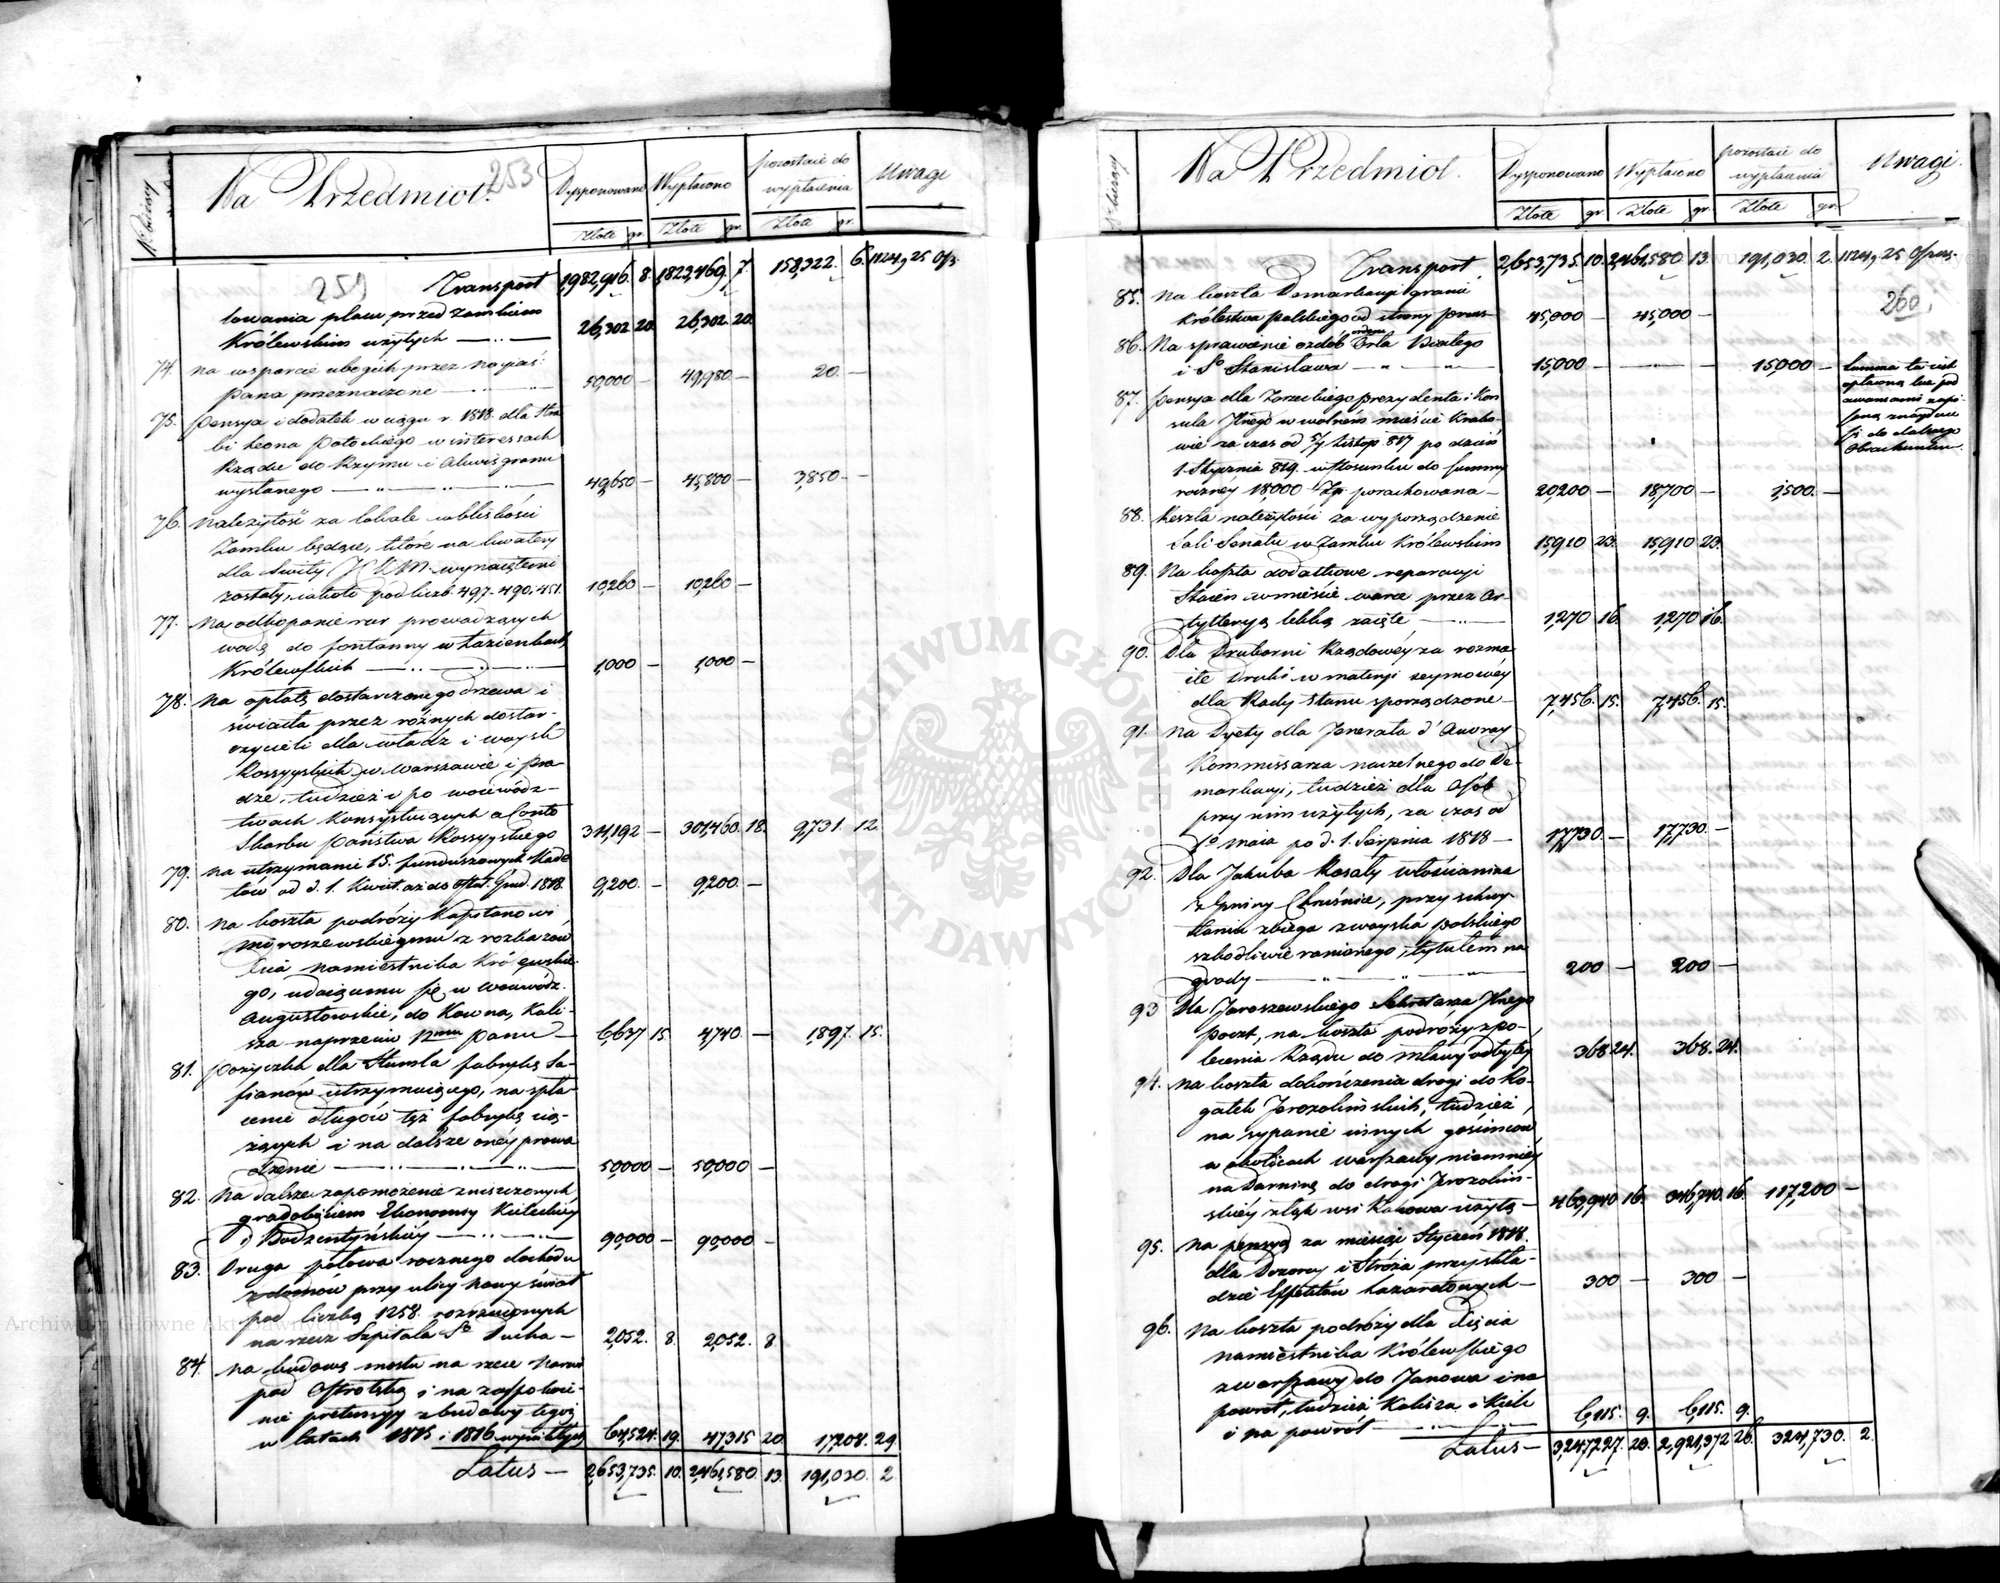 N bieżący
Na Przedmiot.
253
Dysponowano
Wypłacono
pozostaie do
wypłacenia
Uwagi
Złote gr.
Złote gr.
Złote gr.
259
Transport 1,982,916. 8. 1,823,469. 7. 158,322. 6.
lowania placu przed Zamkiem
Królewskim użytych 26,302 20. 26,302. 20.
74. Na wsparcie ubogich przez Nayiaś:
Pana przeznaczone 50,000 — 49,980 — 20. —
75. Pensya i dodatek w ciągu r. 1818. dla Hra
bi Leona Potockiego w interessach
Rządu do Rzymu i Akwisgranu
wysłanego 49,650 — 45,800 — 3,850 —
76. Należytość za lokale w bliskości
Zamku będące, które na kwatery
dla Swity J. C. K. M. wynaięteni
zostały, iako to pod liczb. 497. 490. 451. 10,260 — 10,260 —
77. Na odkopanie rur prowadzących
wodę do fontanny w Łazienkach
Królewskich 1,000 — 1,000 —
78. Na opłatę dostarczonego drzewa i
światła przez różnych dostar-
czycieli dla władz i woysk
Rossyyskich w Warszawie i Pra-
dze, tudzież i po woiewódz-
twach konsystuiących a Conto
Skarbu Państwa Rossyyskiego 311,192 — 301,460. 18. 9,731. 12.
79. Na utrzymanie 15. funduszowych Kade
tów od d. 1. Kwiet. aż do ostat. Grud. 1818. 9,200. — 9,200 —
80. Na koszta podróży Kapitanowi
Miroszewskiemu z rozkazu
Xcia Namiestnika Królewskie-
go, udaiącemu się w Woiewódz.
Augustowskie, do Kowna, Kali-
sza naprzeciw Panu 6,637 15. 4,740 — 1,897. 15.
81. Pożyczka dla Stumla fabrykę Sa-
fianów utrzymuiącego, na spła-
cenie długów tęż fabrykę cią-
żących i na dalsze oney prowa
dzenie 50,000 — 50,000 —
82. Na dalsze zapomożenie zniszczonych
gradobiciem Ekonomiy Kieleckiey
i Bodzentyńskiey 90,000 — 90,000 —
83. Druga połowa rocznego dochodu
z domów przy ulicy Nowy świat
pod liczbą 1258. rozrzuconych
na rzecz Szpitala Sgo Ducha — 2,052. 8. 2,052. 8.
84. Na budowę mostu na rzece Narwi
pod Ostrołęką i na zaspokoie-
nie pretensyy z budowy tegoż
w latach 1815 i 1816 wynikłych 64,524. 19. 47,315 20. 17,208. 29
Latus — 2,653,735. 10. 2,461,580. 13. 191,030. 2
N bieżący
Na Przedmiot.
Dysponowano
Wypłacono
pozostaie do
wypłacenia
Uwagi.
Złote gr.
Złote gr.
Złote gr.
Transport 2,653,735. 10. 2,461,580. 13. 191,030. 2.
260
85. Na koszta Demarkacyi granic
Królestwa Polskiego od strony Prus 45,000 — 45,000 —
86. Na sprawienie ozdób orderu Orła Białego
i So Stanisława 15,000 — 15,000 —
Summa ta iest
awansami zapi-
saną znayduie
się do dalszego
Obrachunku.
87. Pensya dla Zarzeckiego prezydenta i Kon
sula Jlnego w wolnem mieście Krako-
wie za czas od 5/7 Listop. 817 po dzień
1. Stycznia 819. w stosunku do summy
roczney 18,000 Zp. porachowana — 20,200 — 18,700 — 1,500. —
88. Reszta należytości za wyporządzenie
Sali Senatu w Zamku Królewskim 15,910 23. 15,910 23.
89. Na koszta dodatkowe reparacyi
Staien w mieście Warce przez Ar-
tylleryą lekką zaięte, 1,270 16. 1,270 16.
90. Dla Drukarni Rządowey za rozma
ite Druki w materyi seymowey
dla Rady Stanu sporządzone — 7,456. 15. 7,456. 15.
91. Na Dyety dla Jenerała d'Auvray
Kommissarza naczelnego do De-
markacyi, tudzież dla Osób
przy nim użytych, za czas od
1o Maia po d. 1. Sierpnia 1818 — 17,730 — 17,730. —
92. Dla Jakuba Kosały włościanina
z Gminy Chruśnice, przy schwy-
taniu zbiega z woyska polskiego
szkodliwie ranionego, tytułem na
grody 200 — 200 —
93 Dla Jaroszewskiego Sekretarza Jlnego
Poczt, na koszta podróży z po-
lecenia Rządu do Mławy odbytey 368 24. 368. 24.
94. Na koszta dokończenia drogi do Ro-
gatek Jerozolimskich, tudzież,
na sypanie innych gościńców
w okolicach Warszawy niemniey
na Darninę do drogi Jerozolim-
skiey z łąk wsi Rakowa użytą — 463,940 16. 346,740. 16. 117,200 —
95. Na pensyą za miesiąc Styczeń 1818.
dla Dozorcy i Stróża przy skła-
dzie Effektów Lazaretowych — 300 — 300 —
96. Na koszta podróży dla Xięcia
Namiestnika Królewskiego
z Warszawy do Janowa i na
powrót, tudzież Kalisza i Kielc
i na powrót — 6,115. 9. 6,115. 9.
Latus — 3,247,227. 20. 2,921,372 26. 324,730. 2.
ARCHIWUM GŁÓWNE AKT DAWNYCH
Archiwum Główne Akt Dawnych